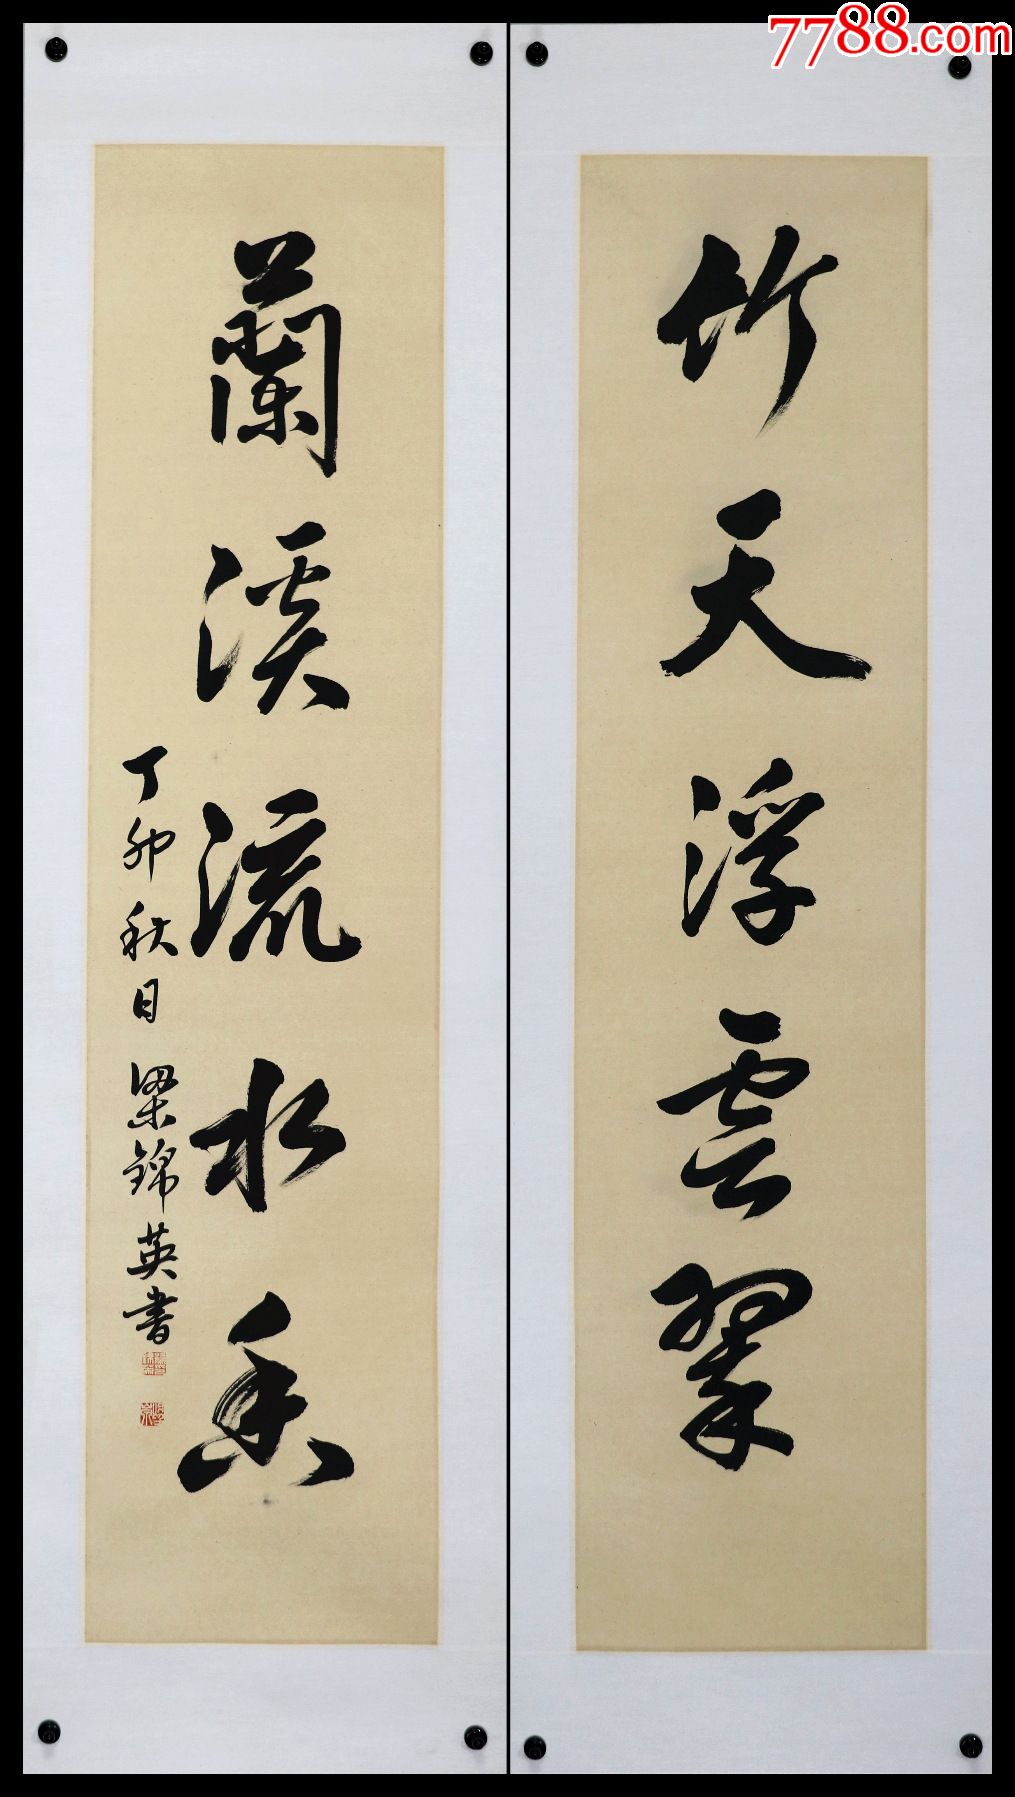 竹天浮雲翠
蘭溪流水香
丁卯秋日梁錦英書
7788.com